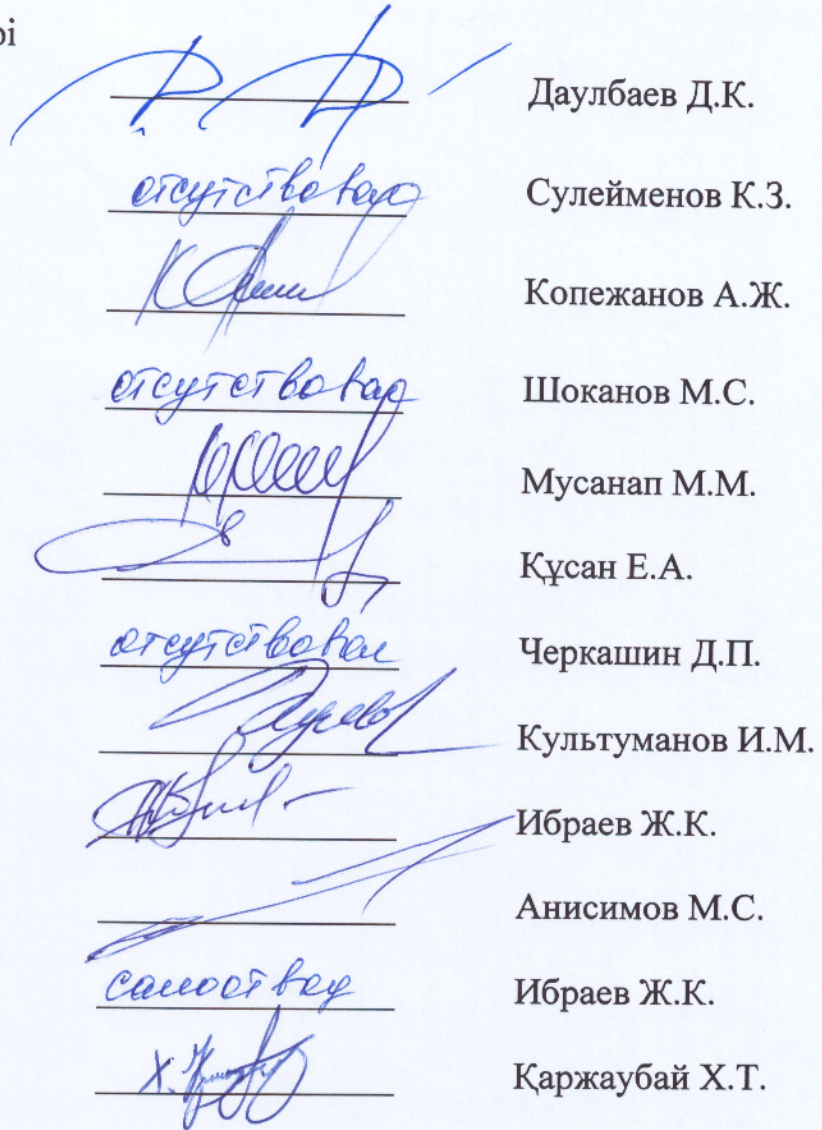 рі
Даулбаев Д.К.
отсутствовал Сулейменов К.З.
Копежанов А.Ж.
отсутствовал Шоканов М.С.
Мусанап М.М.
Құсан Е.А.
отсутствовал Черкашин Д.П.
Культуманов И.М.
Ибраев Ж.К.
Анисимов М.С.
самоотвод Ибраев Ж.К.
Қаржаубай Х.Т.